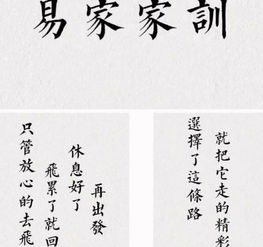 易家家訓
只管放心的去飛
飛累了就回
休息好了
再出發
選擇了這條路
就把它走的精彩